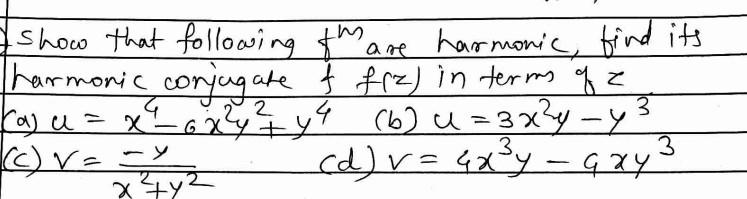 Show that following fⁿˢ are harmonic, find its
harmonic conjugate & f(z) in terms of z
(a) u = x⁴ - 6x²y² + y⁴ (b) u = 3x²y - y³
(c) v = -y / x²+y² (d) v = 4x³y - 4xy³